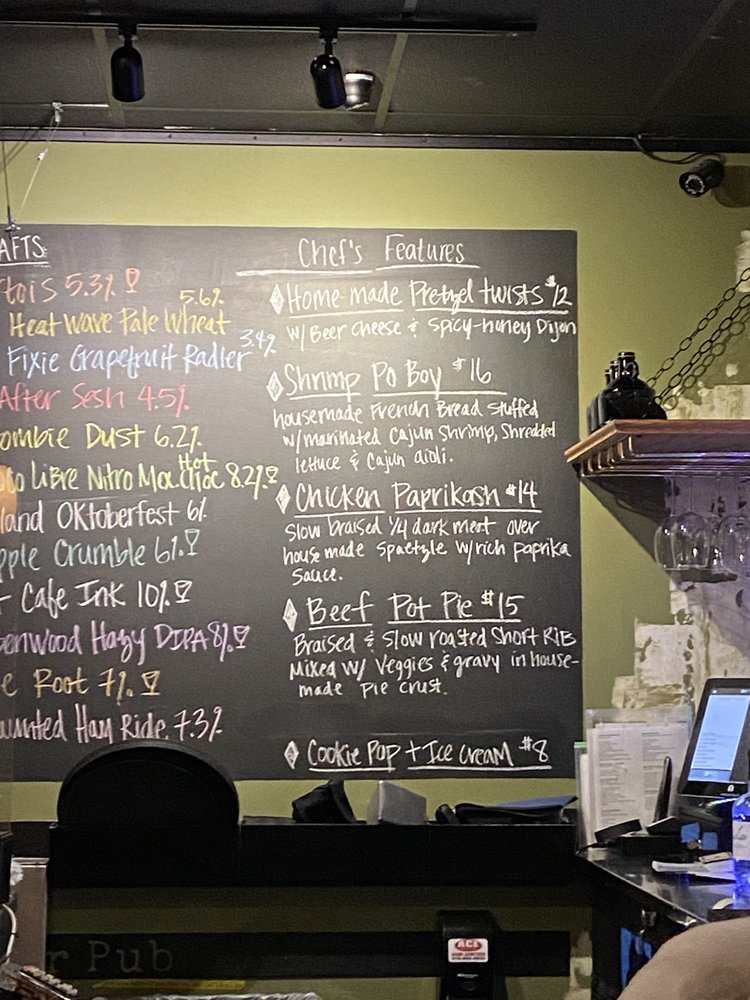 AFTS
tois 5.3%
5.6%
Heat Wave Pale Wheat
3.4%
Fixie Grapefruit Radler
After Sesh 4.5%
ombie Dust 6.2%
co Libre Nitro Mex. Hot Choc 8.2%
land Oktoberfest 6%
pple Crumble 6%
Cafe Ink 10%
enwood Hazy DIPA 8%
e Root 7%
aunted Hay Ride 7.3%
Chef's Features
Home-made Pretzel twists $12
w/ Beer cheese & Spicy-honey Dijon
Shrimp Po Boy $16
housemade French Bread stuffed
w/marinated Cajun Shrimp, Shredded
lettuce & Cajun aioli.
Chicken Paprikash $14
Slow braised 1/4 dark meat over
house made Spaetzle w/rich paprika
Sauce.
Beef Pot Pie $15
Braised & Slow roasted Short Rib
Mixed w/ Veggies & gravy in house-
made pie crust.
Cookie Pop + Ice Cream $8
r Pub
ACE